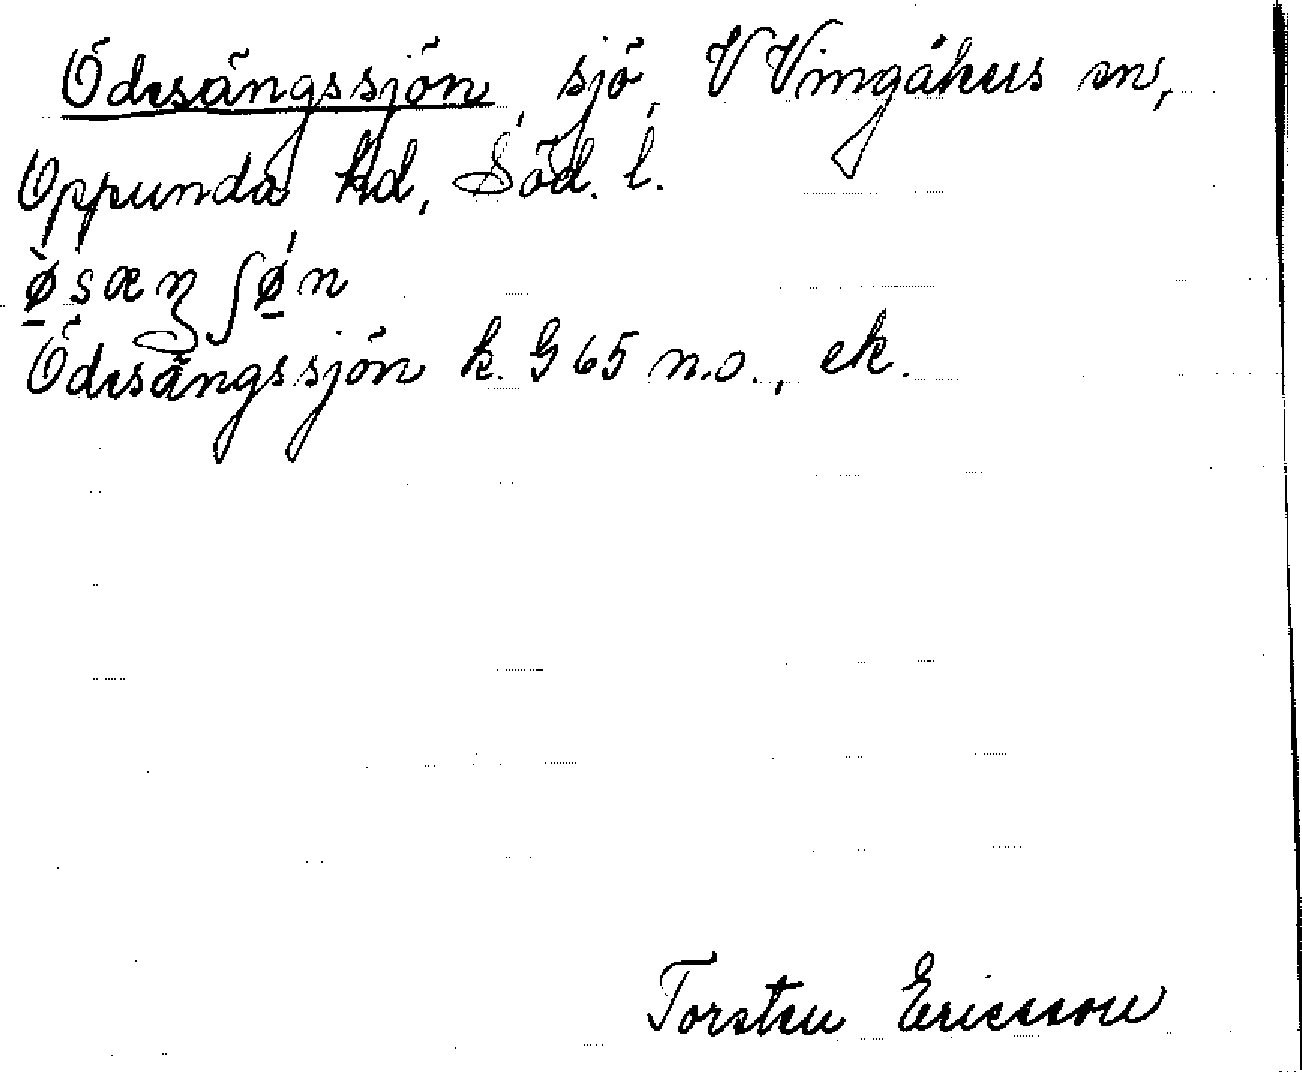 Ödesängssjön, sjö, V Vingåkers sn,
Oppunda hd, Söd. l.
ø̱̀sæŋʃǿ̱n
Ödesängssjön k. G 65 n.o., ek.
Torsten Ericsson